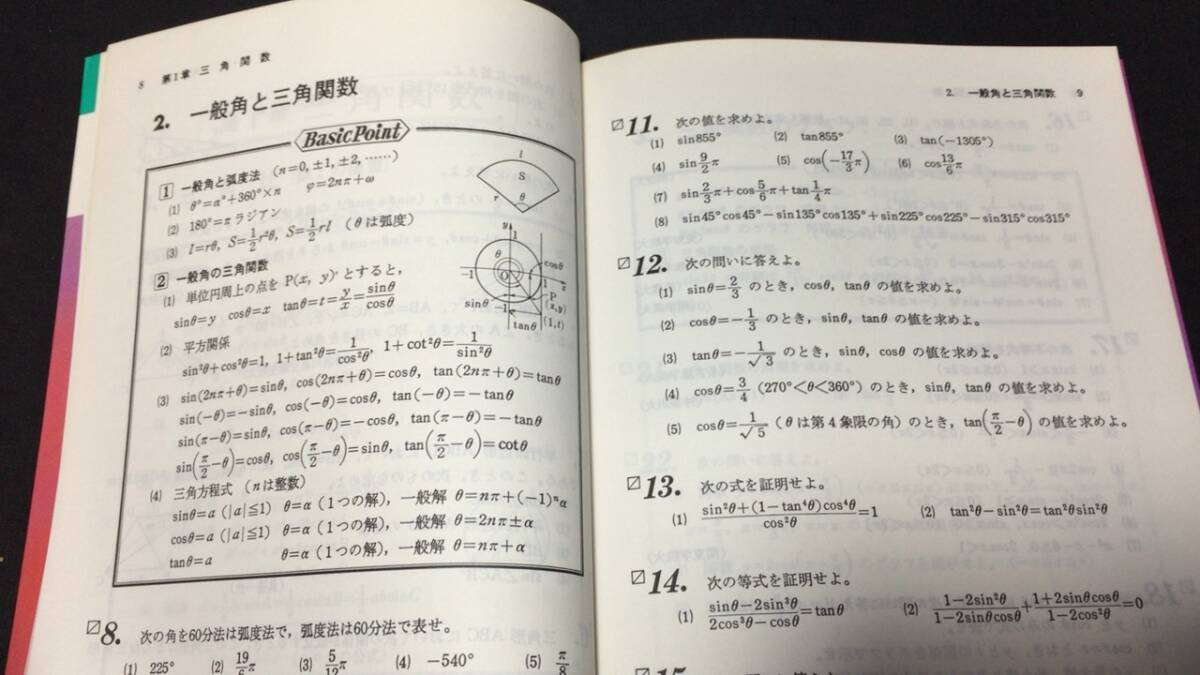 8 第1章 三角関数
2. 一般角と三角関数
BasicPoint
1 一般角と弧度法 (n=0, ±1, ±2, ……)
(1) θ°=α°+360°×n φ=2nπ+ω
(2) 180°=π ラジアン
(3) l=rθ, S=1/2r²θ, S=1/2rl (θは弧度)
l
S
r
θ
2 一般角の三角関数
(1) 単位円周上の点を P(x, y) とすると,
sinθ=y cosθ=x tanθ=t=y/x=sinθ/cosθ
y
1
θ
cosθ
-1
O
1
x
sinθ
P
(x,y)
-1
tanθ
(1,t)
(2) 平方関係
sin²θ+cos²θ=1, 1+tan²θ=1/cos²θ, 1+cot²θ=1/sin²θ
(3) sin(2nπ+θ)=sinθ, cos(2nπ+θ)=cosθ, tan(2nπ+θ)=tanθ
sin(-θ)=-sinθ, cos(-θ)=cosθ, tan(-θ)=-tanθ
sin(π-θ)=sinθ, cos(π-θ)=-cosθ, tan(π-θ)=-tanθ
sin(π/2-θ)=cosθ, cos(π/2-θ)=sinθ, tan(π/2-θ)=cotθ
(4) 三角方程式 (nは整数)
sinθ=a (|a|≦1) θ=α (1つの解), 一般解 θ=nπ+(-1)ⁿα
cosθ=a (|a|≦1) θ=α (1つの解), 一般解 θ=2nπ±α
tanθ=a θ=α (1つの解), 一般解 θ=nπ+α
8. 次の角を60分法は弧度法で, 弧度法は60分法で表せ。
(1) 225° (2) 19/6π (3) 5/12π (4) -540° (5) π/8
2. 一般角と三角関数 9
11. 次の値を求めよ。
(1) sin855° (2) tan855° (3) tan(-1305°)
(4) sin9/2π (5) cos(-17/3π) (6) cos13/6π
(7) sin2/3π+cos5/6π+tan1/4π
(8) sin45°cos45°-sin135°cos135°+sin225°cos225°-sin315°cos315°
12. 次の問いに答えよ。
(1) sinθ=2/3 のとき, cosθ, tanθ の値を求めよ。
(2) cosθ=-1/3 のとき, sinθ, tanθ の値を求めよ。
(3) tanθ=-1/√3 のとき, sinθ, cosθ の値を求めよ。
(4) cosθ=3/4 (270°<θ<360°) のとき, sinθ, tanθ の値を求めよ。
(5) cosθ=1/√5 (θは第4象限の角) のとき, tan(π/2-θ) の値を求めよ。
13. 次の式を証明せよ。
(1) sin²θ+(1-tan⁴θ)cos⁴θ/cos²θ=1 (2) tan²θ-sin²θ=tan²θsin²θ
14. 次の等式を証明せよ。
(1) sinθ-2sin³θ/2cos³θ-cosθ=tanθ (2) 1-2sin²θ/1-2sinθcosθ+1+2sinθcosθ/1-2cos²θ=0